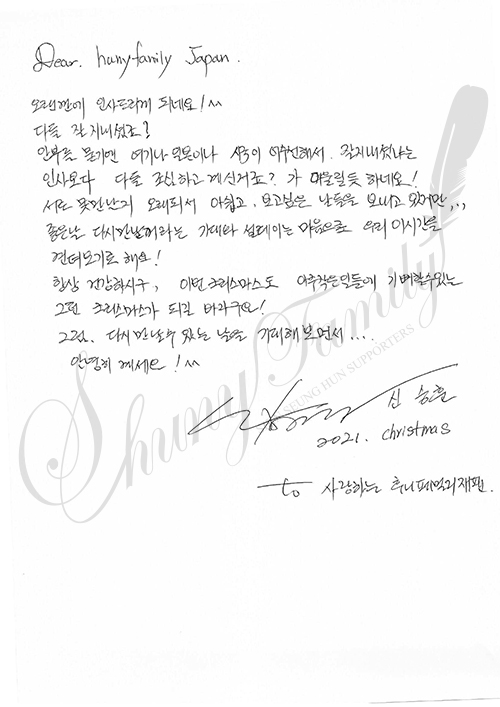 Dear. hunyfamily Japan.
오랜만에 인사드리게 되네요!^^
다들 잘 지내셨죠?
안부를 묻기엔 여기나 일본이나 시국이 어수선해서. 잘지내셨냐는
인사보다 다들 조심하고 계신거죠? 가 어울릴듯 하네요!
서로 못만난지 오래되서 아쉽고. 보고싶은 날들을 보내고 있지만...
좋은날 다시만날꺼라는 기대와 설레이는 마음으로 우리 이시간을
견뎌보기로 해요!
항상 건강하시구, 이번 크리스마스도 아주작은일들에 기뻐할수있는
그런 크리스마스가 되길 바라구요!
그럼. 다시만날수 있는 날을 기대해보면서...
안녕히 계세요!^^
신승훈
2021. christmas
to 사랑하는 후니패밀리재팬.
Shuny Family
SHIN SEUNG HUN SUPPORTERS